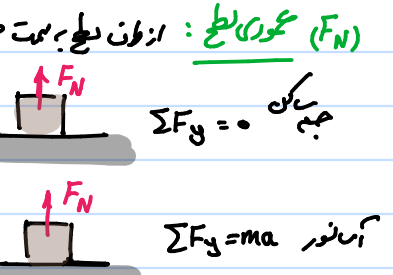 (F_N) عمودی سطح : از طرف سطح به سمت
F_N
ΣF_y = 0 جسم ساکن
F_N
ΣF_y = ma آسانسور